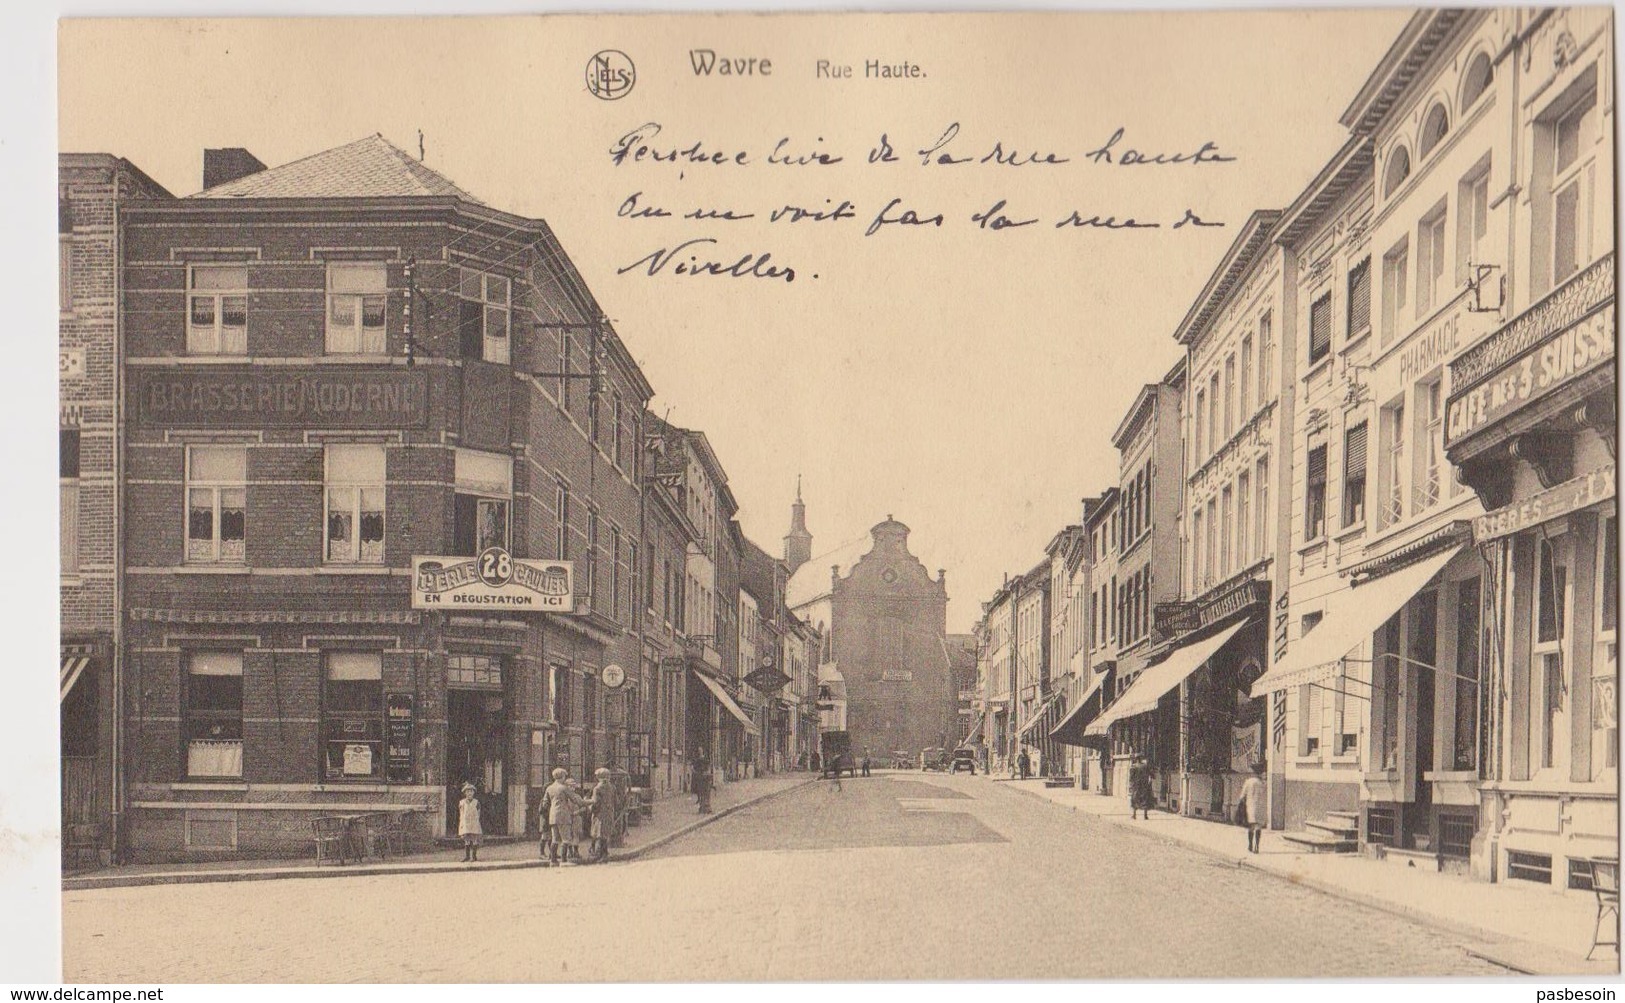 NELS
Wavre Rue Haute.
Perspective de la rue haute
On ne voit pas la rue de
Nivelles.
BRASSERIE MODERNE
PERLE 28 CAULIER
EN DÉGUSTATION ICI
PHARMACIE
CAFÉ DES 3 SUISSE
BIÈRES
PATISSERIE
TELEPHONE
www.delcampe.net
pasbesoin